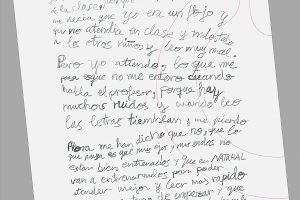 a la clase, porque
me decía que yo era un flojo y
que no atendía en clase y molesto
a los otros niños y leo muy mal.
Pero yo atiendo, lo que me
pasa es que no me entero cuando
habla el profesor, porque hay
muchos ruidos y cuando leo
las letras tiemblan y me pierdo
Ahora me han dicho que no, que lo
que me pasa es que mis oj y mis oidos no
estan bien entrenados y que en NATURAL
van a entrenarmelos para poder
atender mejor y leer mas rapido
de empezar y que